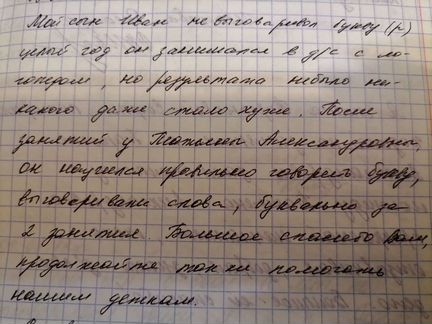 Мой сын Иван не выговаривал букву (р)
целый год он занимался в д/с с ло-
гопедом, но результата небыло ни-
какого даже стало хуже. После
занятий у Татьяны Александровны,
он научился правильно говорить букву,
выговаривать слова, буквально за
2 занятия. Большое спасибо Вам,
продолжайте так же помогать
нашим деткам.